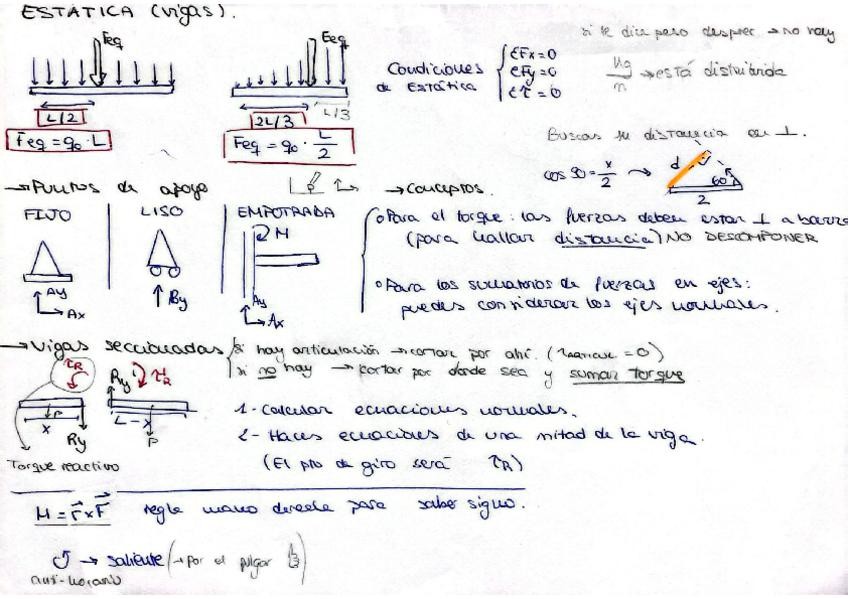 ESTÁTICA (vigas).
Feq
Feq
L/2
2L/3
L/3
Feq = q₀ · L
Feq = q₀ · L/2
Condiciones de Estática
ΣFx = 0
ΣFy = 0
Στ = 0
si te dice peso desprec → no hay
→ está distribuida
Buscas su distancia en ⊥.
cos 90 = x/2 →
d
60°
2
→ Puntos de apoyo
FIJO
LISO
EMPOTRADA
M
Ay
Ax
By
Ay
Ax
→ Conceptos.
Para el torque: las fuerzas deben estar ⊥ a barra
(para hallar distancia) NO DESCOMPONER
Para los sumatorios de fuerzas en ejes:
puedes considerar los ejes normales.
→ Vigas seccionadas
si hay articulación → cortar por ahí. (= 0)
si no hay → cortar por donde sea y sumar torque
τR
Ry'
τR
P
x
Ry
L - x
P
Torque reactivo
1- Calcular ecuaciones normales.
2- Haces ecuaciones de una mitad de la viga.
(El pto de giro será τR)
M = r × F
regla mano derecha para saber signo.
→ saliente (→ por el pulgar)
anti-horario